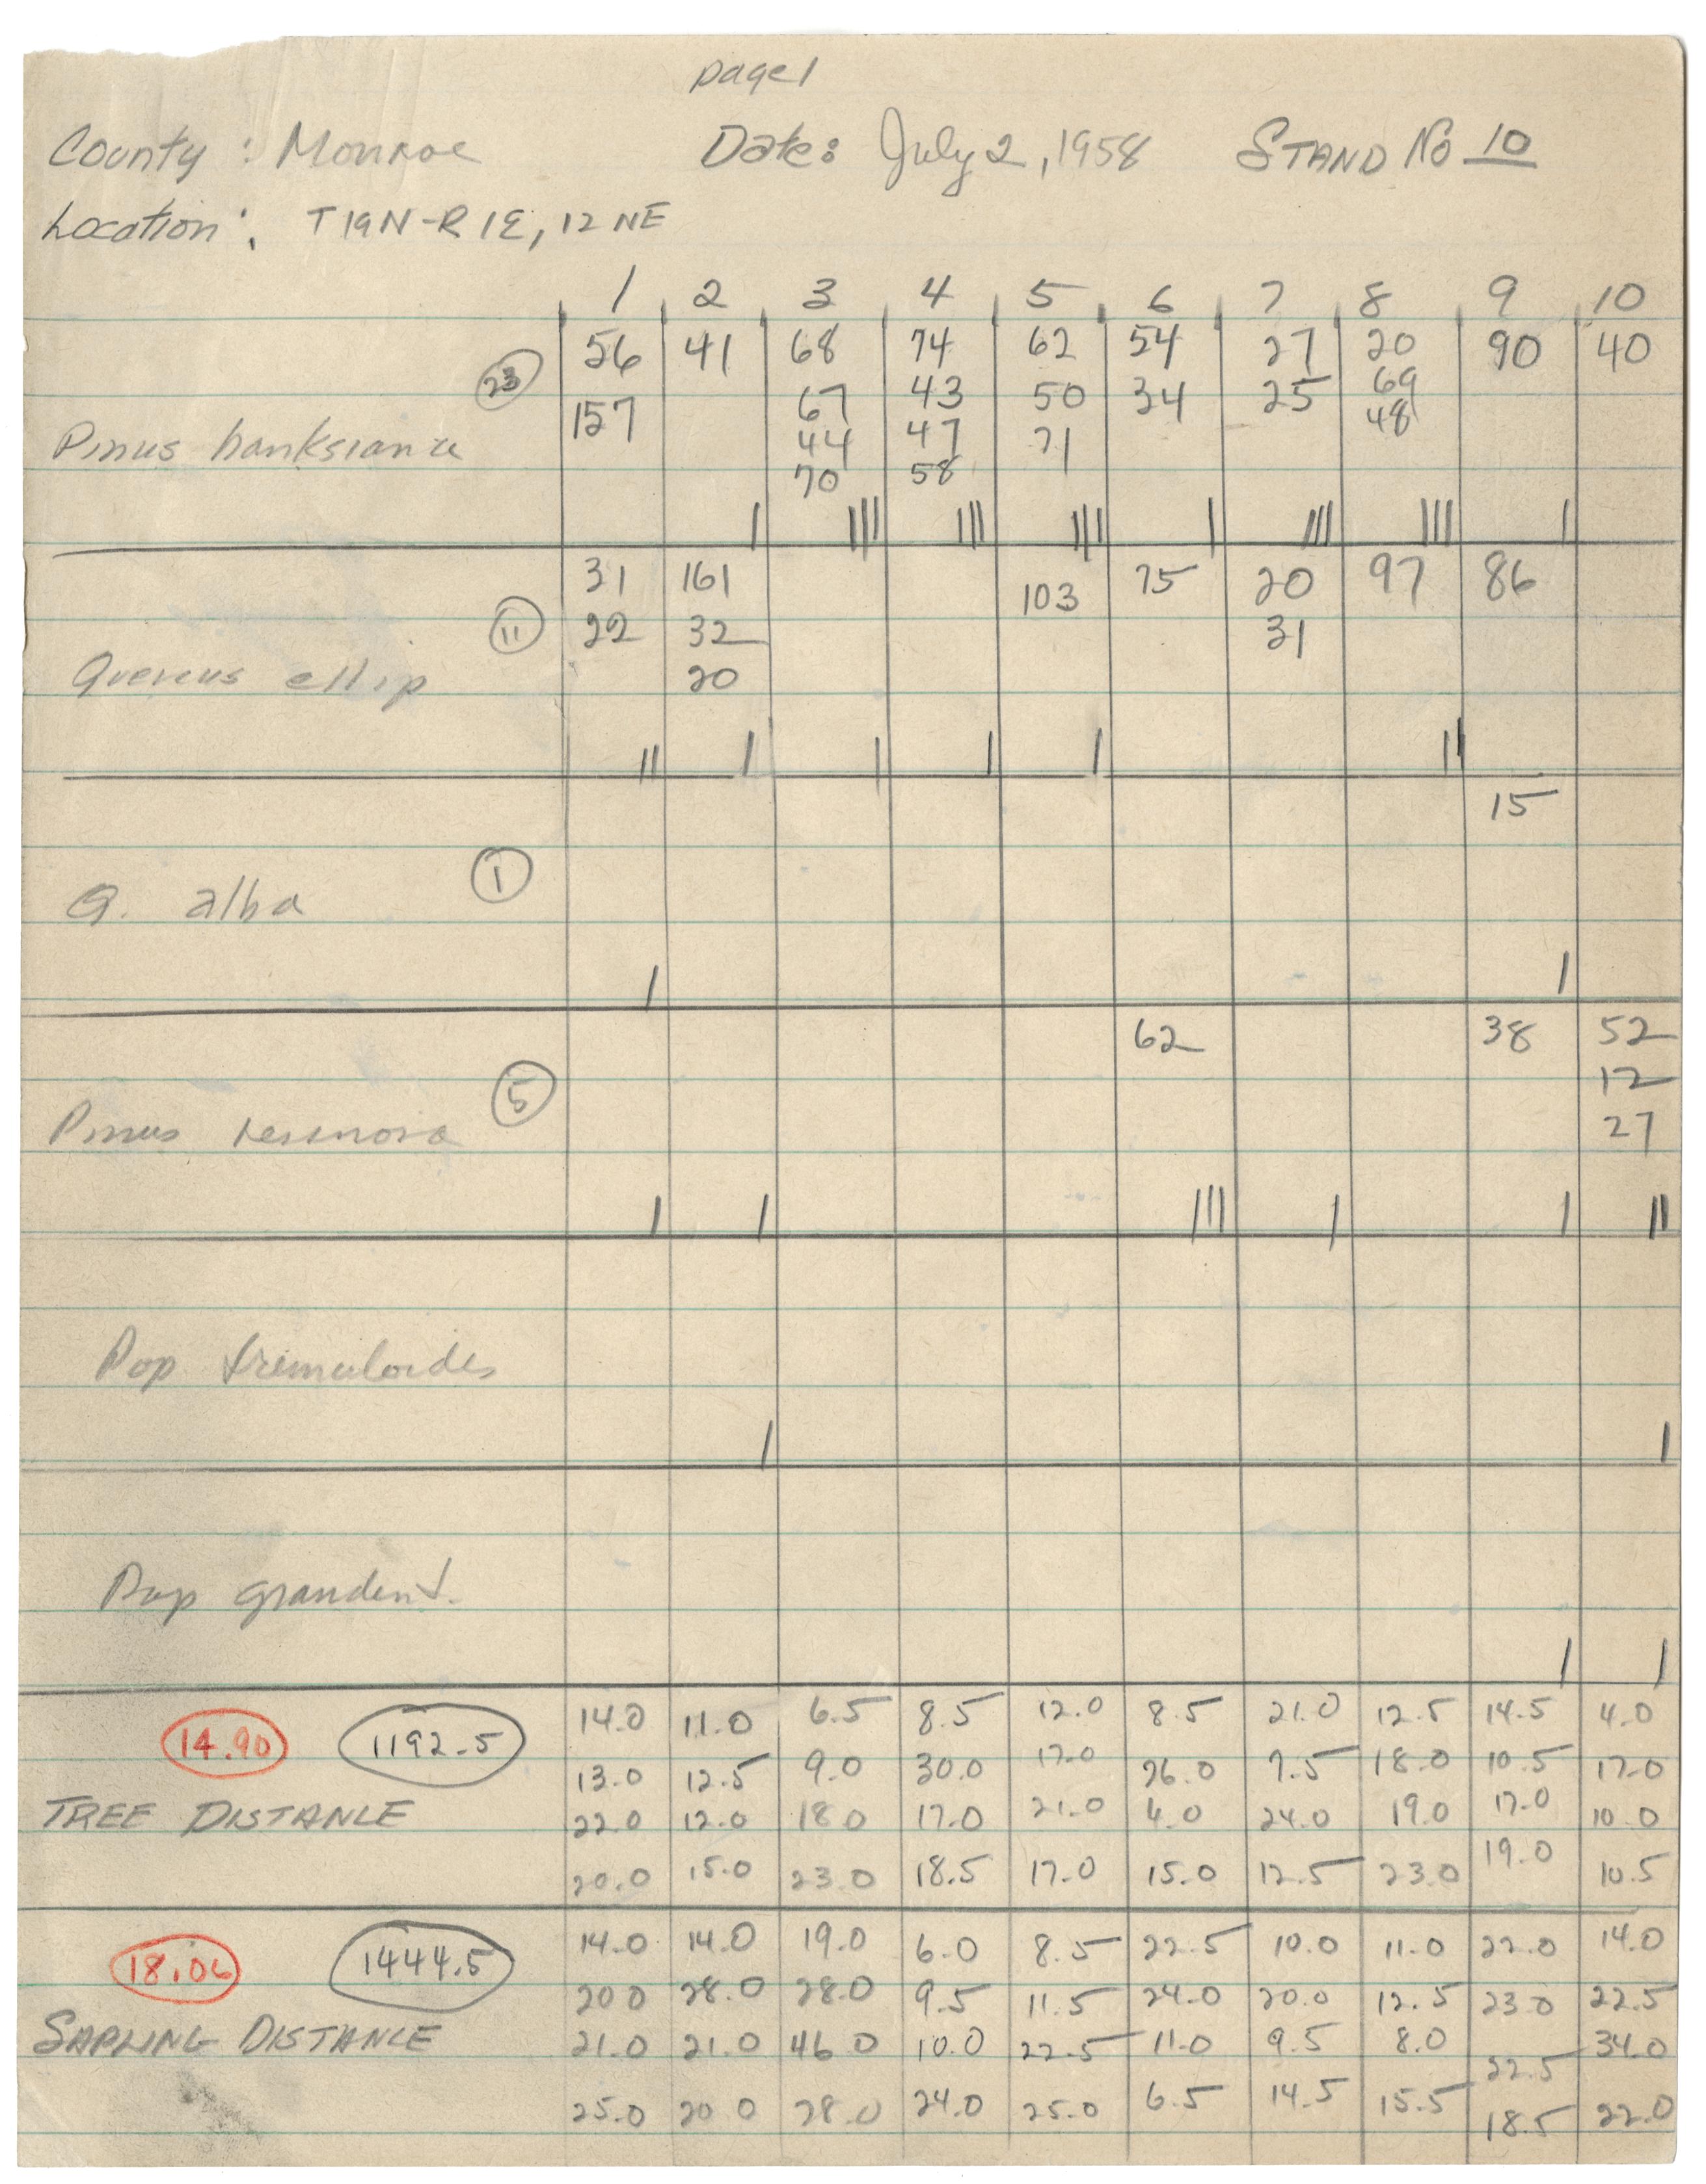 page 1
County: Monroe Date: July 2, 1958 STAND No 10
Location: T19N-R1E, 12 NE
1 2 3 4 5 6 7 8 9 10
56 41 68 74 62 54 27 20 90 40
23 157 67 43 50 34 25 69
Pinus banksiana 44 47 71 48
70 58
| |||| ||| |||| | |||| |||| |
31 161 103 75 20 97 86
11 22 32 31
Quercus ellip 20
|| | | | | ||
15
1
Q. alba
| |
62 38 52
5 12
Pinus resinosa 27
| | ||| | | ||
Pop tremuloides
| |
Pop grandent.
| |
14.0 11.0 6.5 8.5 12.0 8.5 21.0 12.5 14.5 4.0
14.90 1192.5 13.0 12.5 9.0 30.0 17.0 26.0 7.5 18.0 10.5 17.0
TREE DISTANCE 22.0 12.0 18.0 17.0 21.0 4.0 24.0 19.0 17.0 10.0
20.0 15.0 23.0 18.5 17.0 15.0 12.5 23.0 19.0 10.5
14.0 14.0 19.0 6.0 8.5 22.5 10.0 11.0 22.0 14.0
18.06 1444.5 20.0 28.0 28.0 9.5 11.5 24.0 20.0 12.5 23.0 22.5
SAPLING DISTANCE 21.0 21.0 46.0 10.0 22.5 11.0 9.5 8.0 22.5 34.0
25.0 20.0 28.0 24.0 25.0 6.5 14.5 15.5 18.5 22.0